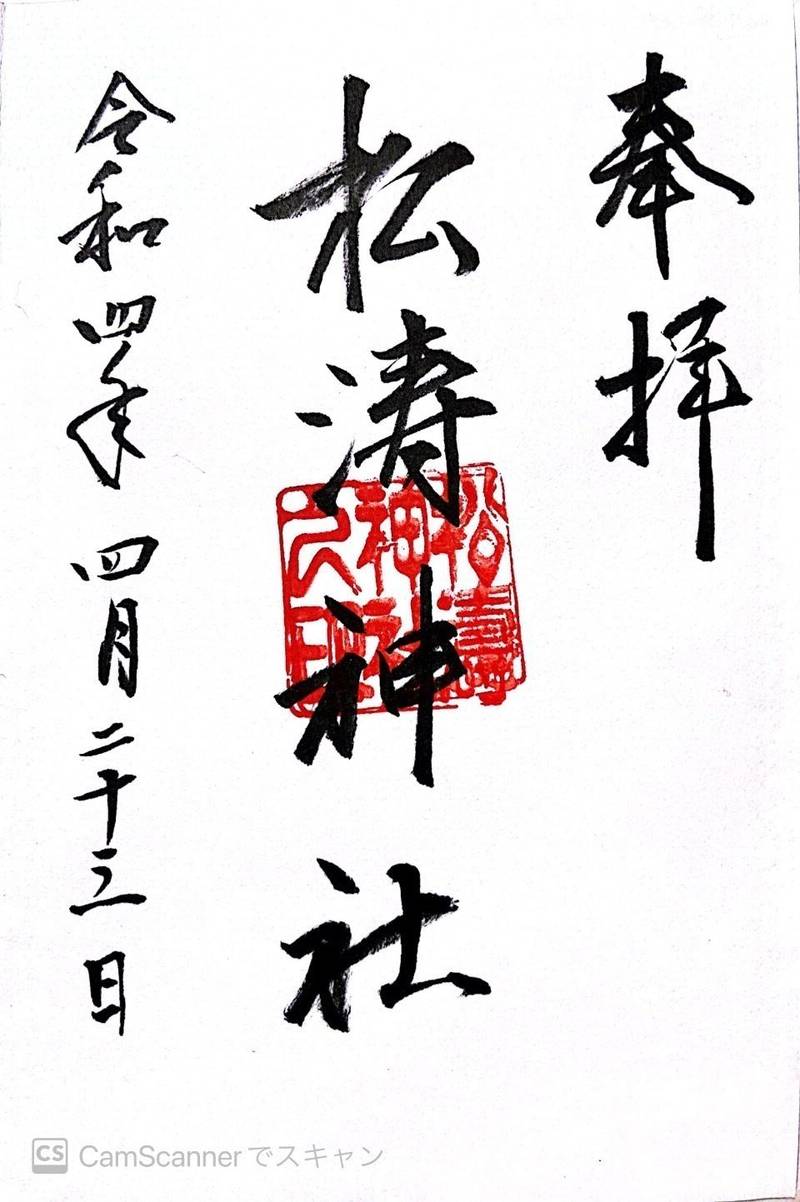 奉拝
松涛神社
令和四年 四月二十三日
CS CamScannerでスキャン